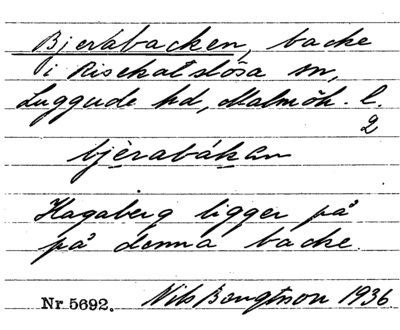 Bjerabacken, backe
i Risekatslösa sn,
Luggude hd, Malmöh. l.
2
bjèrabákan
Hagaberg ligger på
på denna backe.
Nr 5692. Nils Bengtsson 1936